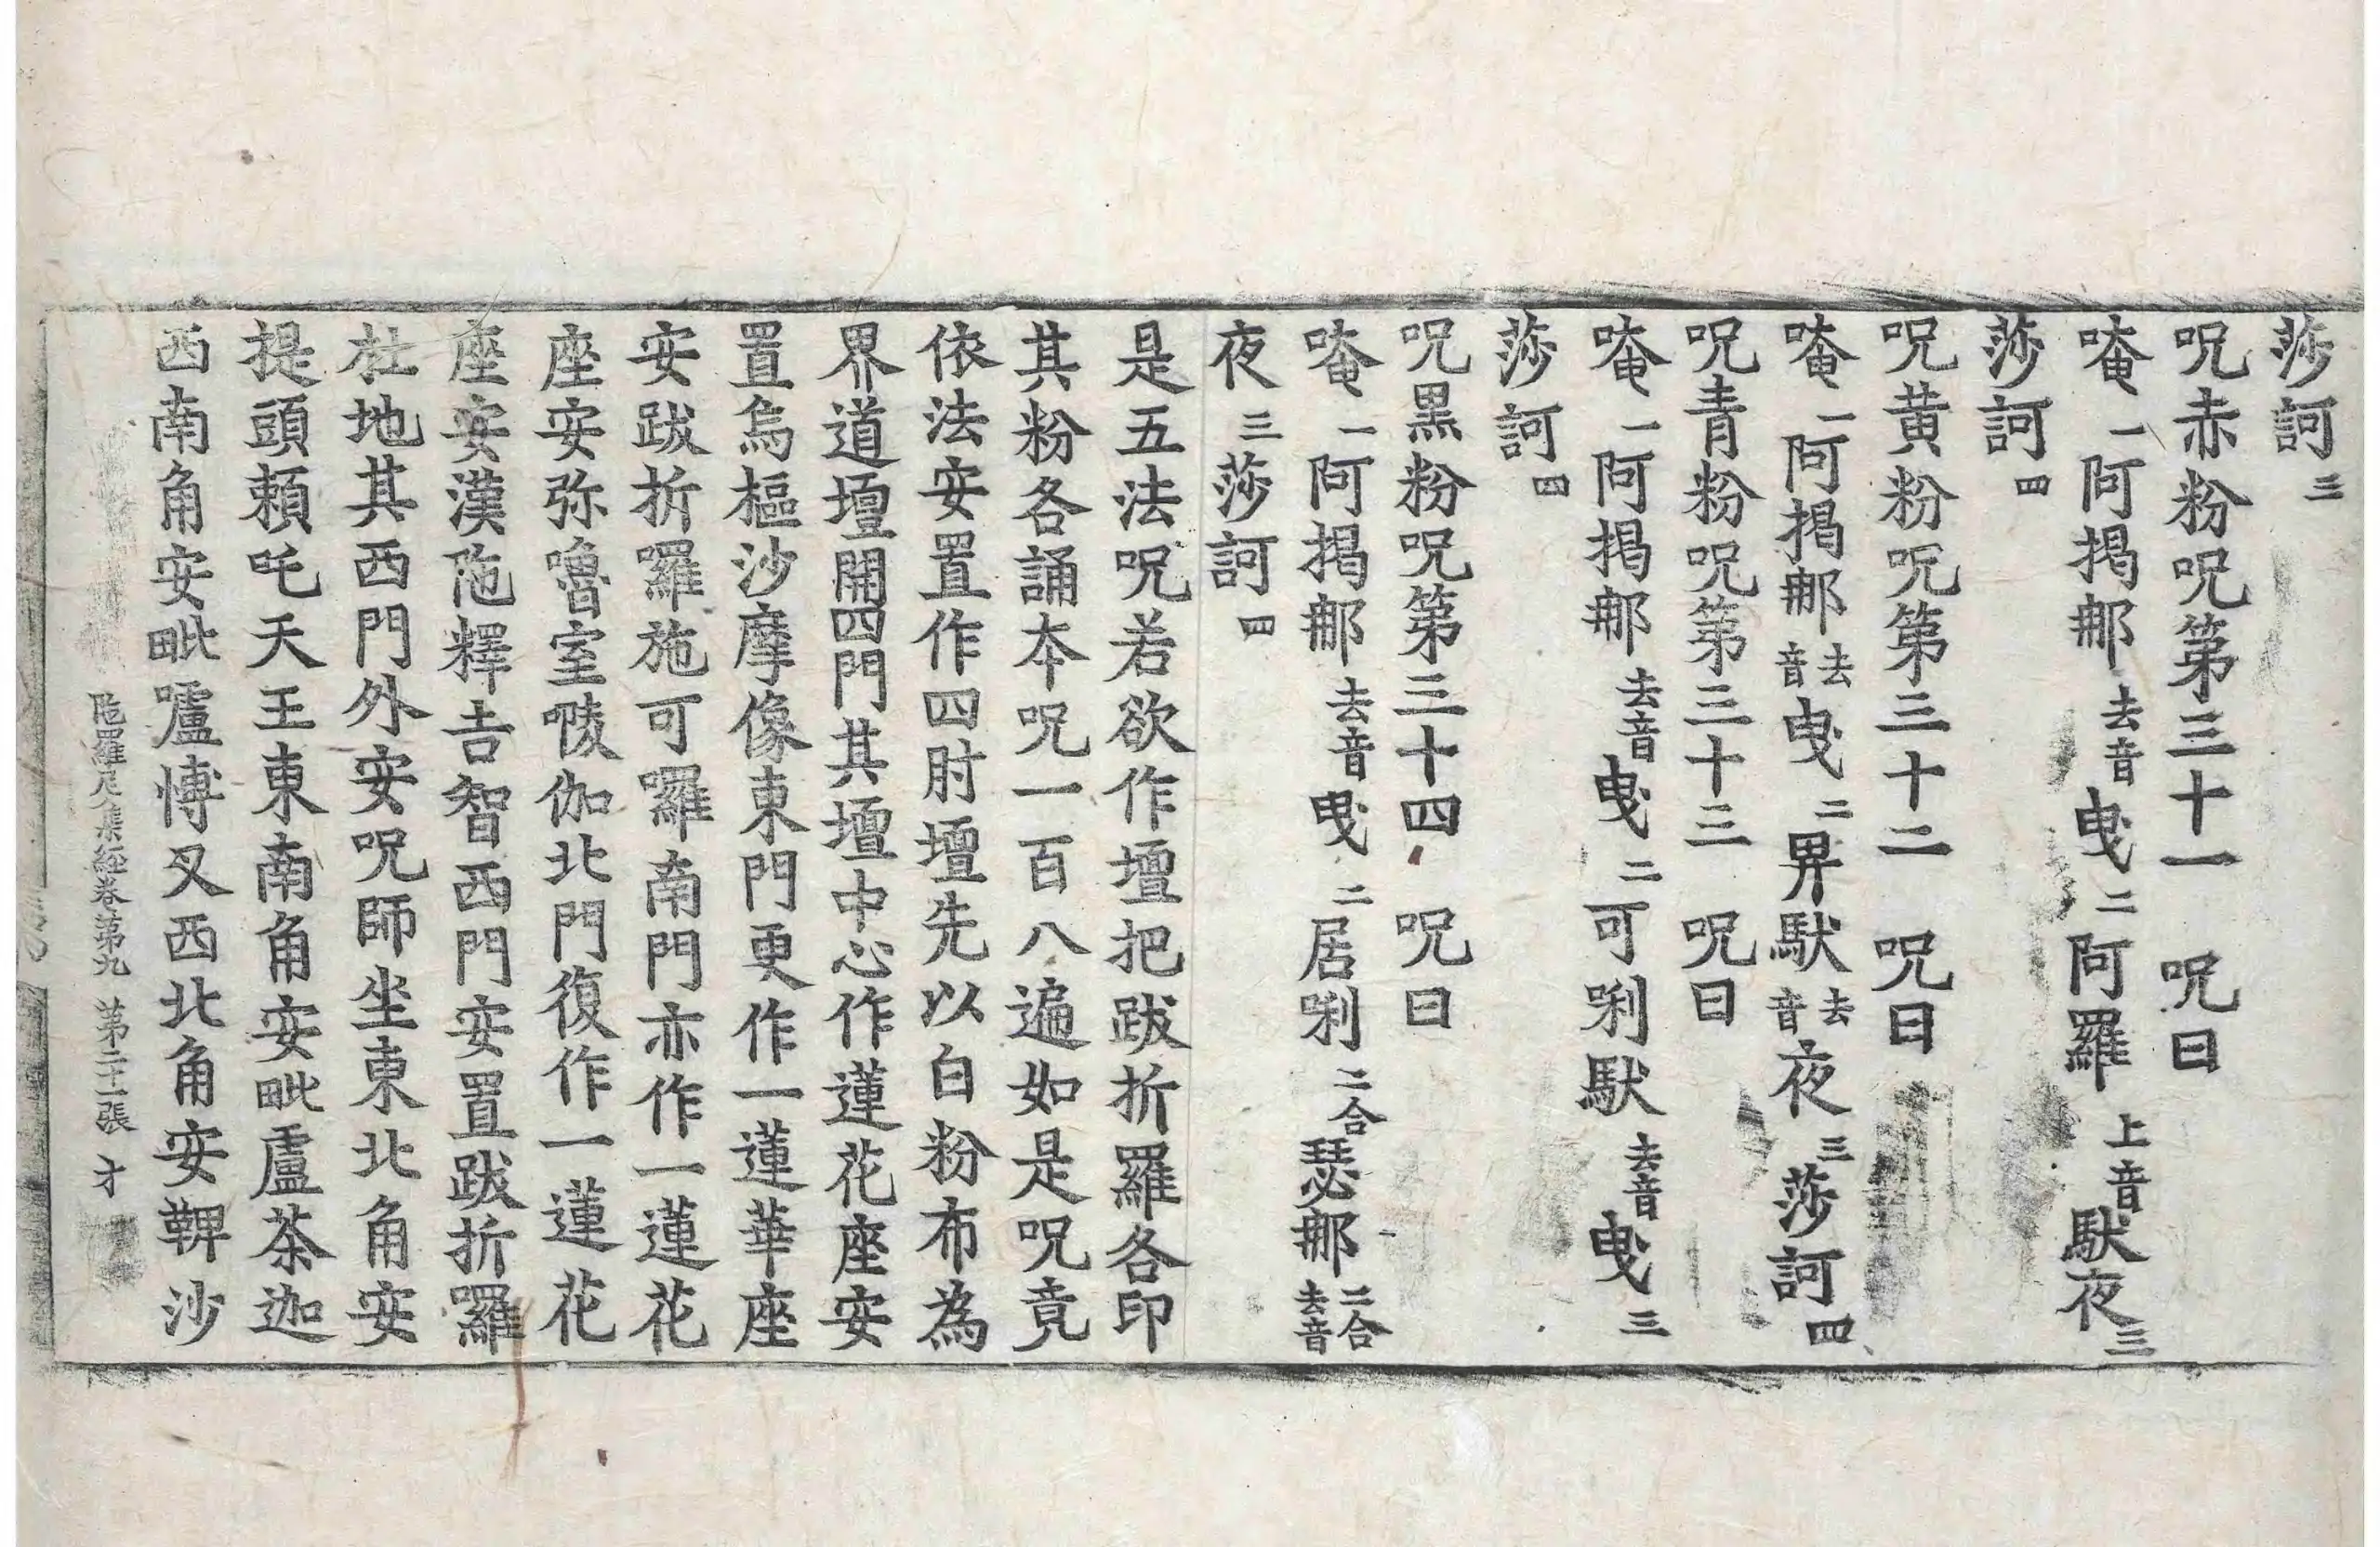 莎訶三
呪赤粉呪第三十一 呪曰
唵一阿揭那去音曳二阿羅上音馱夜三
莎訶四
呪黃粉呪第三十二 呪曰
唵一阿揭那去音曳二畀馱去音夜三莎訶四
呪青粉呪第三十三 呪曰
唵一阿揭那去音曳二可唎馱去音曳三
莎訶四
呪黑粉呪第三十四 呪曰
唵一阿揭那去音曳二居唎二合瑟那二合去音
夜三莎訶四
是五法呪若欲作壇把跋折羅各印
其粉各誦本呪一百八遍如是呪竟
依法安置作四肘壇先以白粉布為
界道壇開四門其壇中心作蓮花座安
置烏樞沙摩像東門更作一蓮華座
安跋折囉施可囉南門亦作一蓮花
座安弥嚕室㘄伽北門復作一蓮花
座安漢陁釋吉智西門安置跋折囉
杜地其西門外安呪師坐東北角安
提頭頼吒天王東南角安毗盧荼迦
西南角安毗嚧博叉西北角安鞞沙
陁羅尼集經卷第九 第二十一張 才